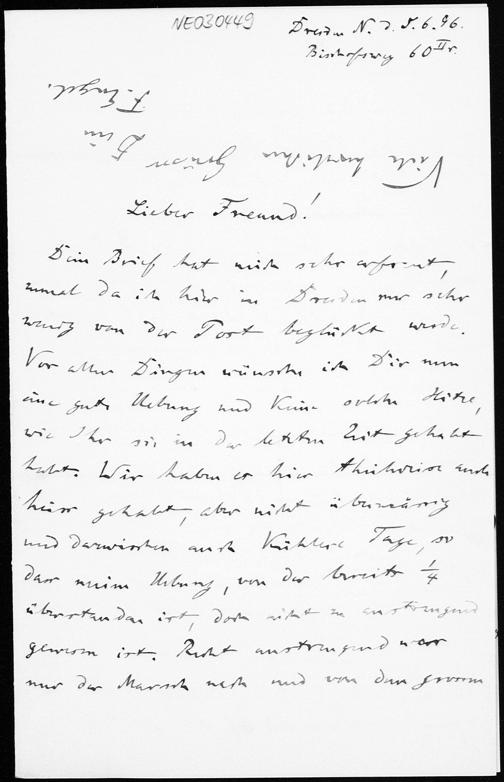 NE030449
Dresden N. d. 5.6.96.
Bischofsweg 60 II r.
Viele herzliche Grüsse Dein
F. Engel.
Lieber Freund!
Dein Brief hat mich sehr erfreut,
zumal da ich hier in Dresden nur sehr
wenig von der Post beglückt werde.
Vor allen Dingen wünsche ich Dir nun
eine gute Uebung und keine solche Hitze,
wie Ihr sie in der letzten Zeit gehabt
habt. Wir haben es hier theilweise auch
heiss gehabt, aber nicht übermässig
und dazwischen auch kühlere Tage, so
dass meine Uebung, von der bereits 1/4
überstanden ist, doch nicht zu anstrengend
gewesen ist. Recht anstrengend war
nur der Marsch nach und von dem grossen